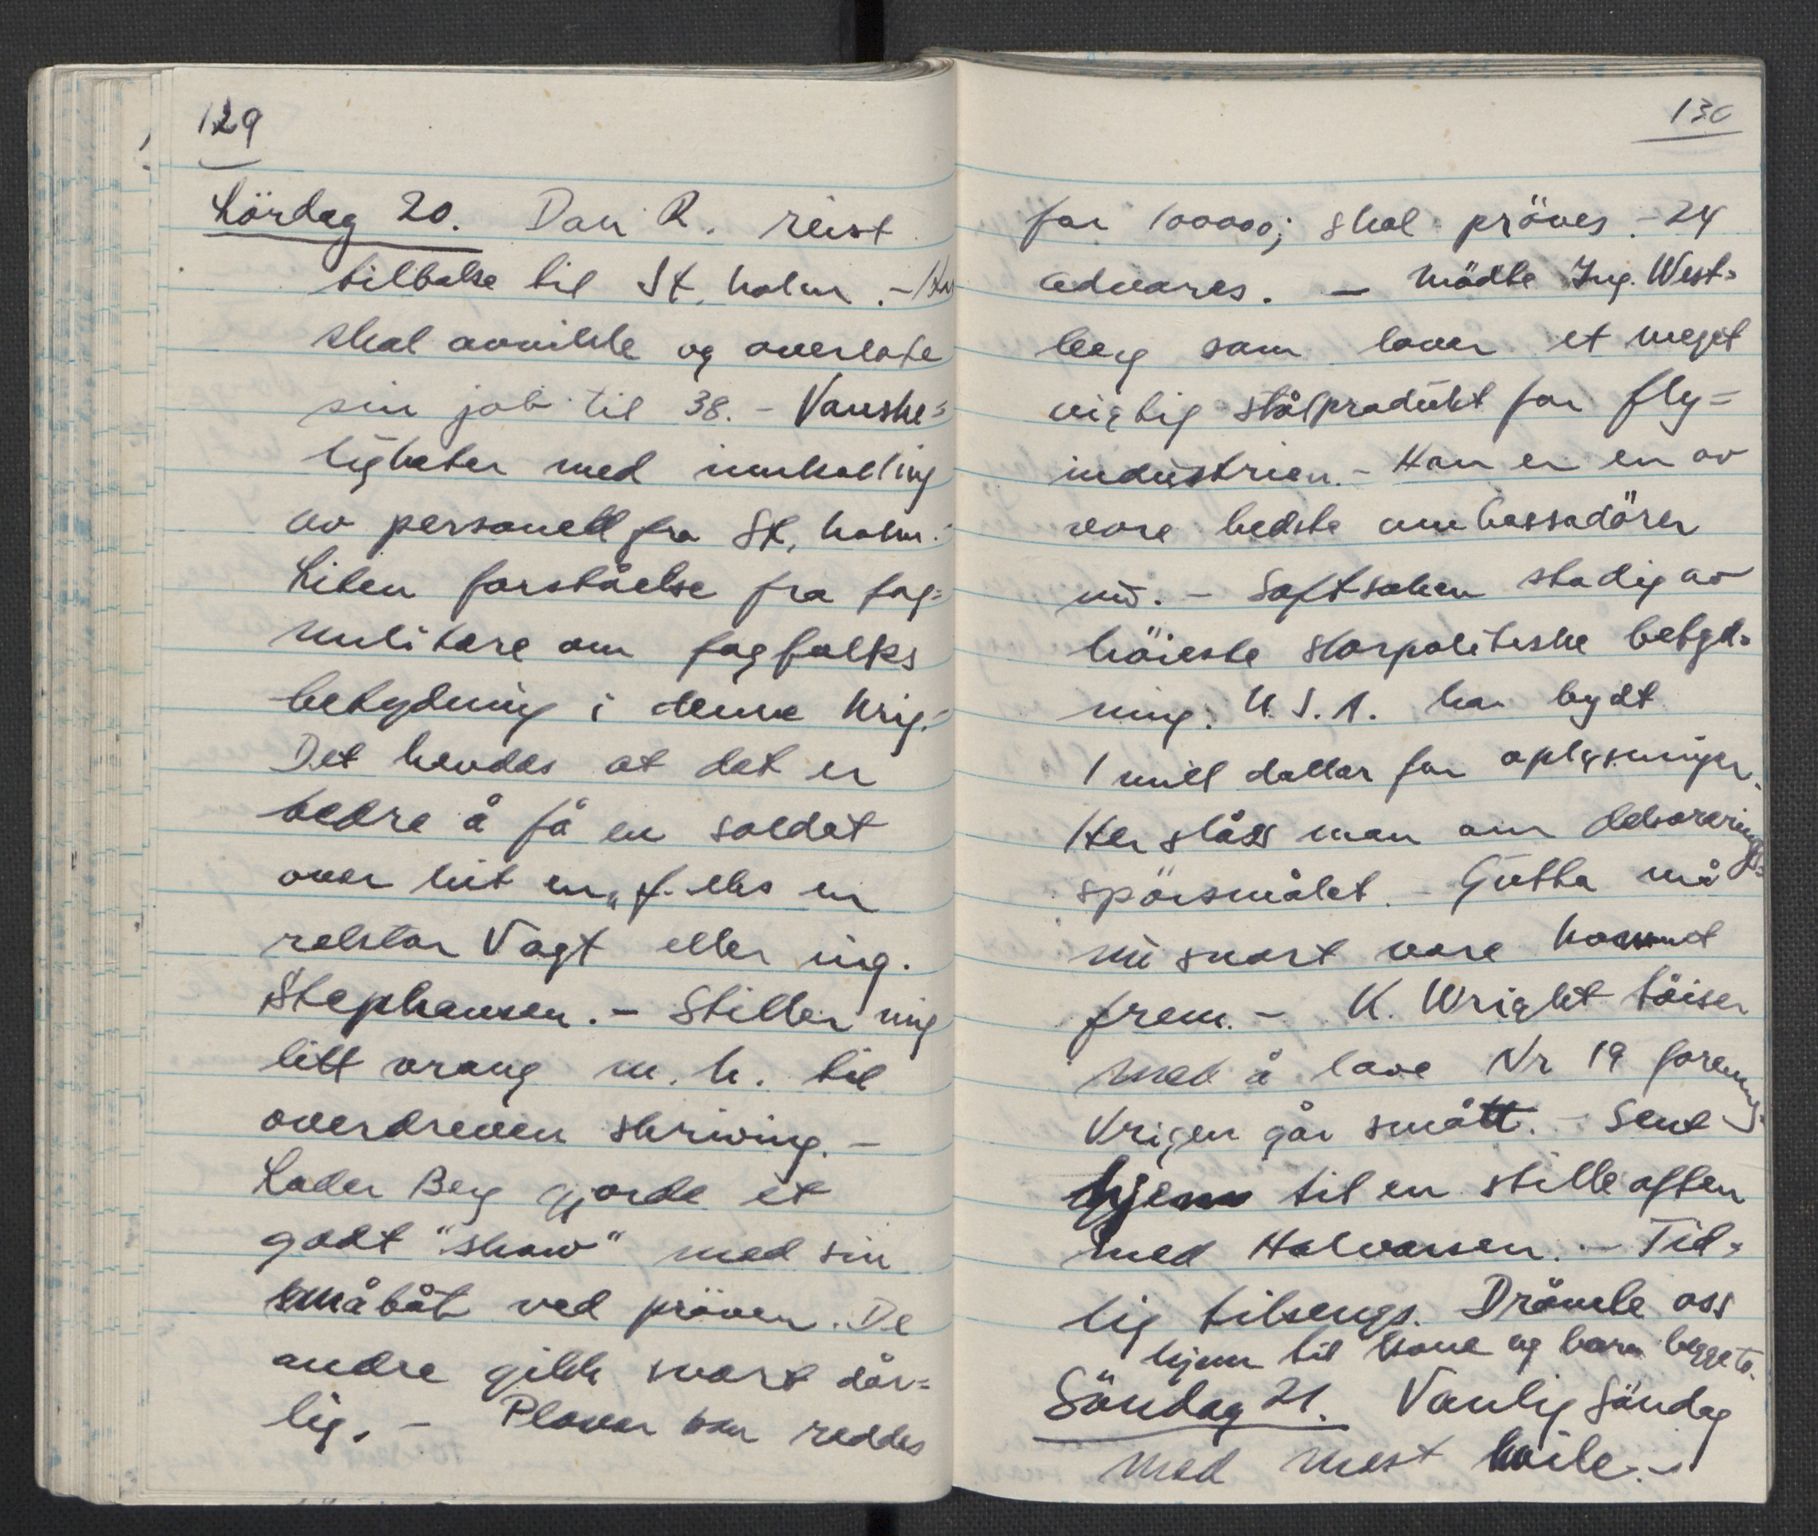 129
Lördag 20. Dan R. reist
tilbake til St. holm. - Han
skal avvikle og overlate
sin job til 38. - Vanske=
ligheter med innkalling
av personell fra St. holm.
Liten forståelse fra fag=
militære om fagfolks
betydning i denne krig.
Det hevdes at det er
bedre å få en soldat
over hit en, f. eks en
rektor Vogt eller ing.
Stephansen. - Stiller mig
litt vrang m. h. til
overdreven skriving. -
Leder Berg gjorde et
godt "show" med sin
småbåt ved pröven. De
andre gikk svært dår=
lig. - Planer kan reddes
130
for 10000; skal pröves. - 24
advares. - Mödte Ing. West=
berg som laver et meget
viktig stålprodukt for fly=
industrien. - Han er en av
vore bedste ambassadörer
nu. - Saftsaken stadig av
höieste storpolitiske betyd=
ning. U.S.A. har bydt
1 mill dollar for oplysninger.
Her slåss man om dekorerings=
spörsmålet. - Gutta må
nu snart være kommet
frem. - K. Wright töiser
med å lave Nr 19 forening.
Krigen går smått. - Sent
hjem til en stille aften
med Halvorsen. - Tid=
lig tilsengs. Drömte oss
hjem til kone og barn begge to.
Söndag 21. Vanlig Söndag
med mest hvile. -